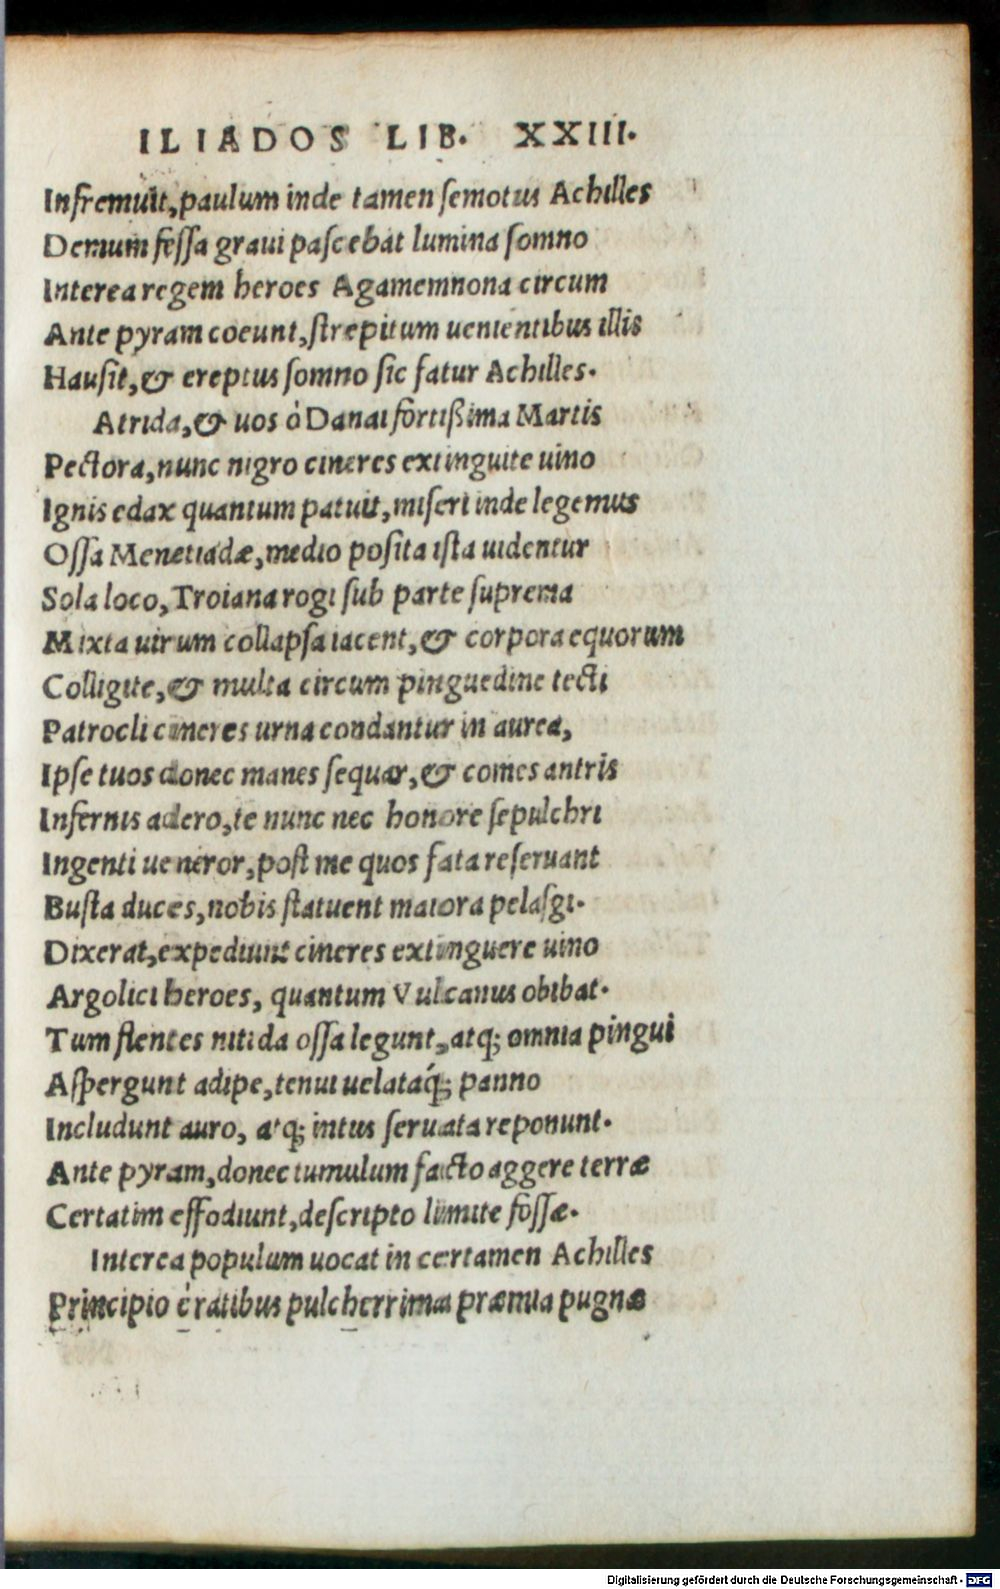 ILIADOS LIB. XXIII.
Infremuit, paulum inde tamen semotus Achilles
Demum fessa graui pascebat lumina somno
Interea regem heroes Agamemnona circum
Ante pyram coeunt, strepitum uenientibus illis
Hausit, & ereptus somno sic fatur Achilles.
Atrida, & uos ò Danai fortißima Martis
Pectora, nunc nigro cineres extinguite uino
Ignis edax quantum patuit, miseri inde legemus
Ossa Menetiadæ, medio posita ista uidentur
Sola loco, Troiana rogi sub parte suprema
Mixta uirum collapsa iacent, & corpora equorum
Colligite, & multa circum pinguedine tecti
Patrocli cineres urna condantur in aurea,
Ipse tuos donec manes sequar, & comes antris
Infernis adero, te nunc nec honore sepulchri
Ingenti ueneror, post me quos fata reseruant
Busta duces, nobis statuent maiora pelasgi.
Dixerat, expediunt cineres extinguere uino
Argolici heroes, quantum Vulcanus obibat.
Tum flentes nitida ossa legunt, atq; omnia pingui
Aspergunt adipe, tenui uelataq́; panno
Includunt auro, atq; intus seruata reponunt.
Ante pyram, donec tumulum facto aggere terræ
Certatim effodiunt, descripto limite fossæ.
Interea populum uocat in certamen Achilles
Principio è ratibus pulcherrima præmia pugnæ
Digitalisierung gefördert durch die Deutsche Forschungsgemeinschaft - DFG